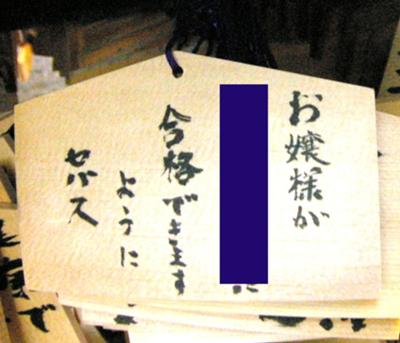 お嬢様が
に
合格できます
ように
セバス